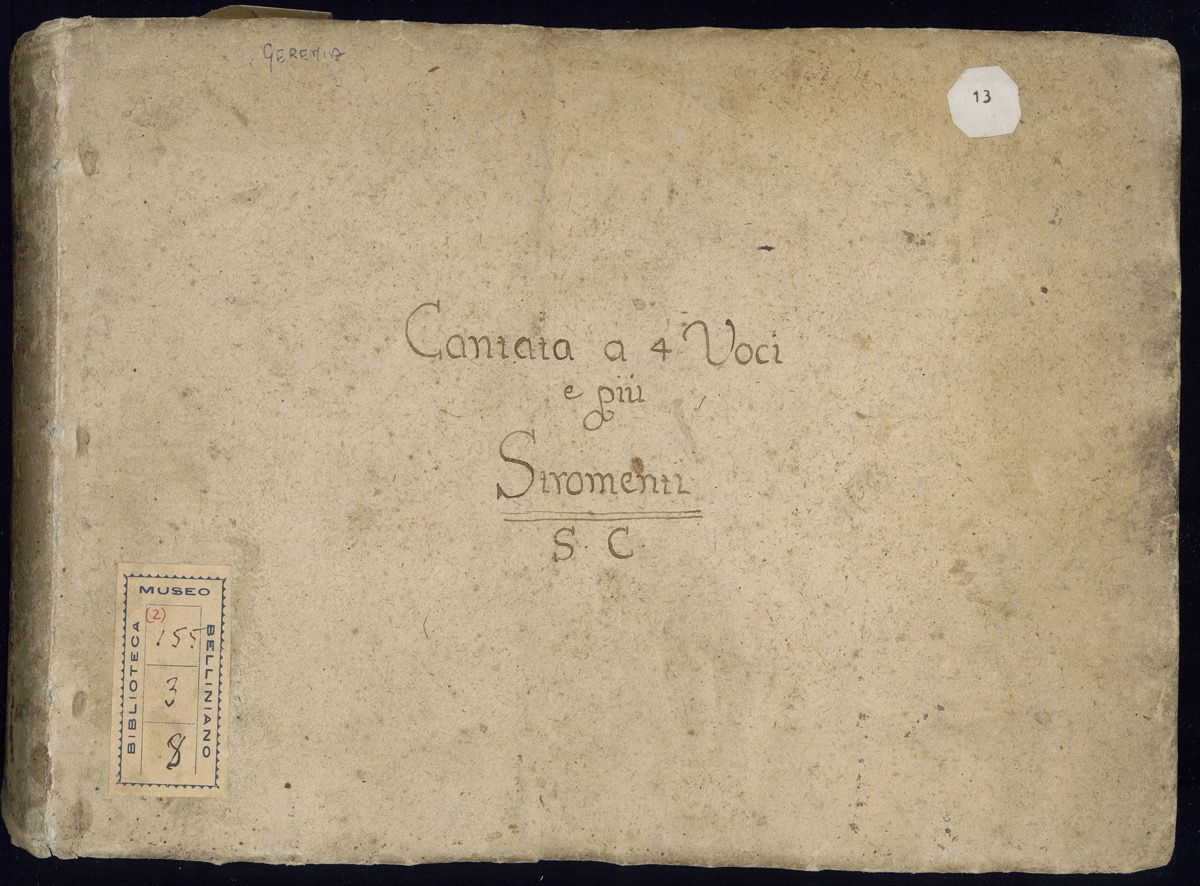 GEREMIA
13
Cantata a 4 Voci
e più
Stromenti
S. C.
MUSEO
BIBLIOTECA
BELLINIANO
(2)
155
3
8